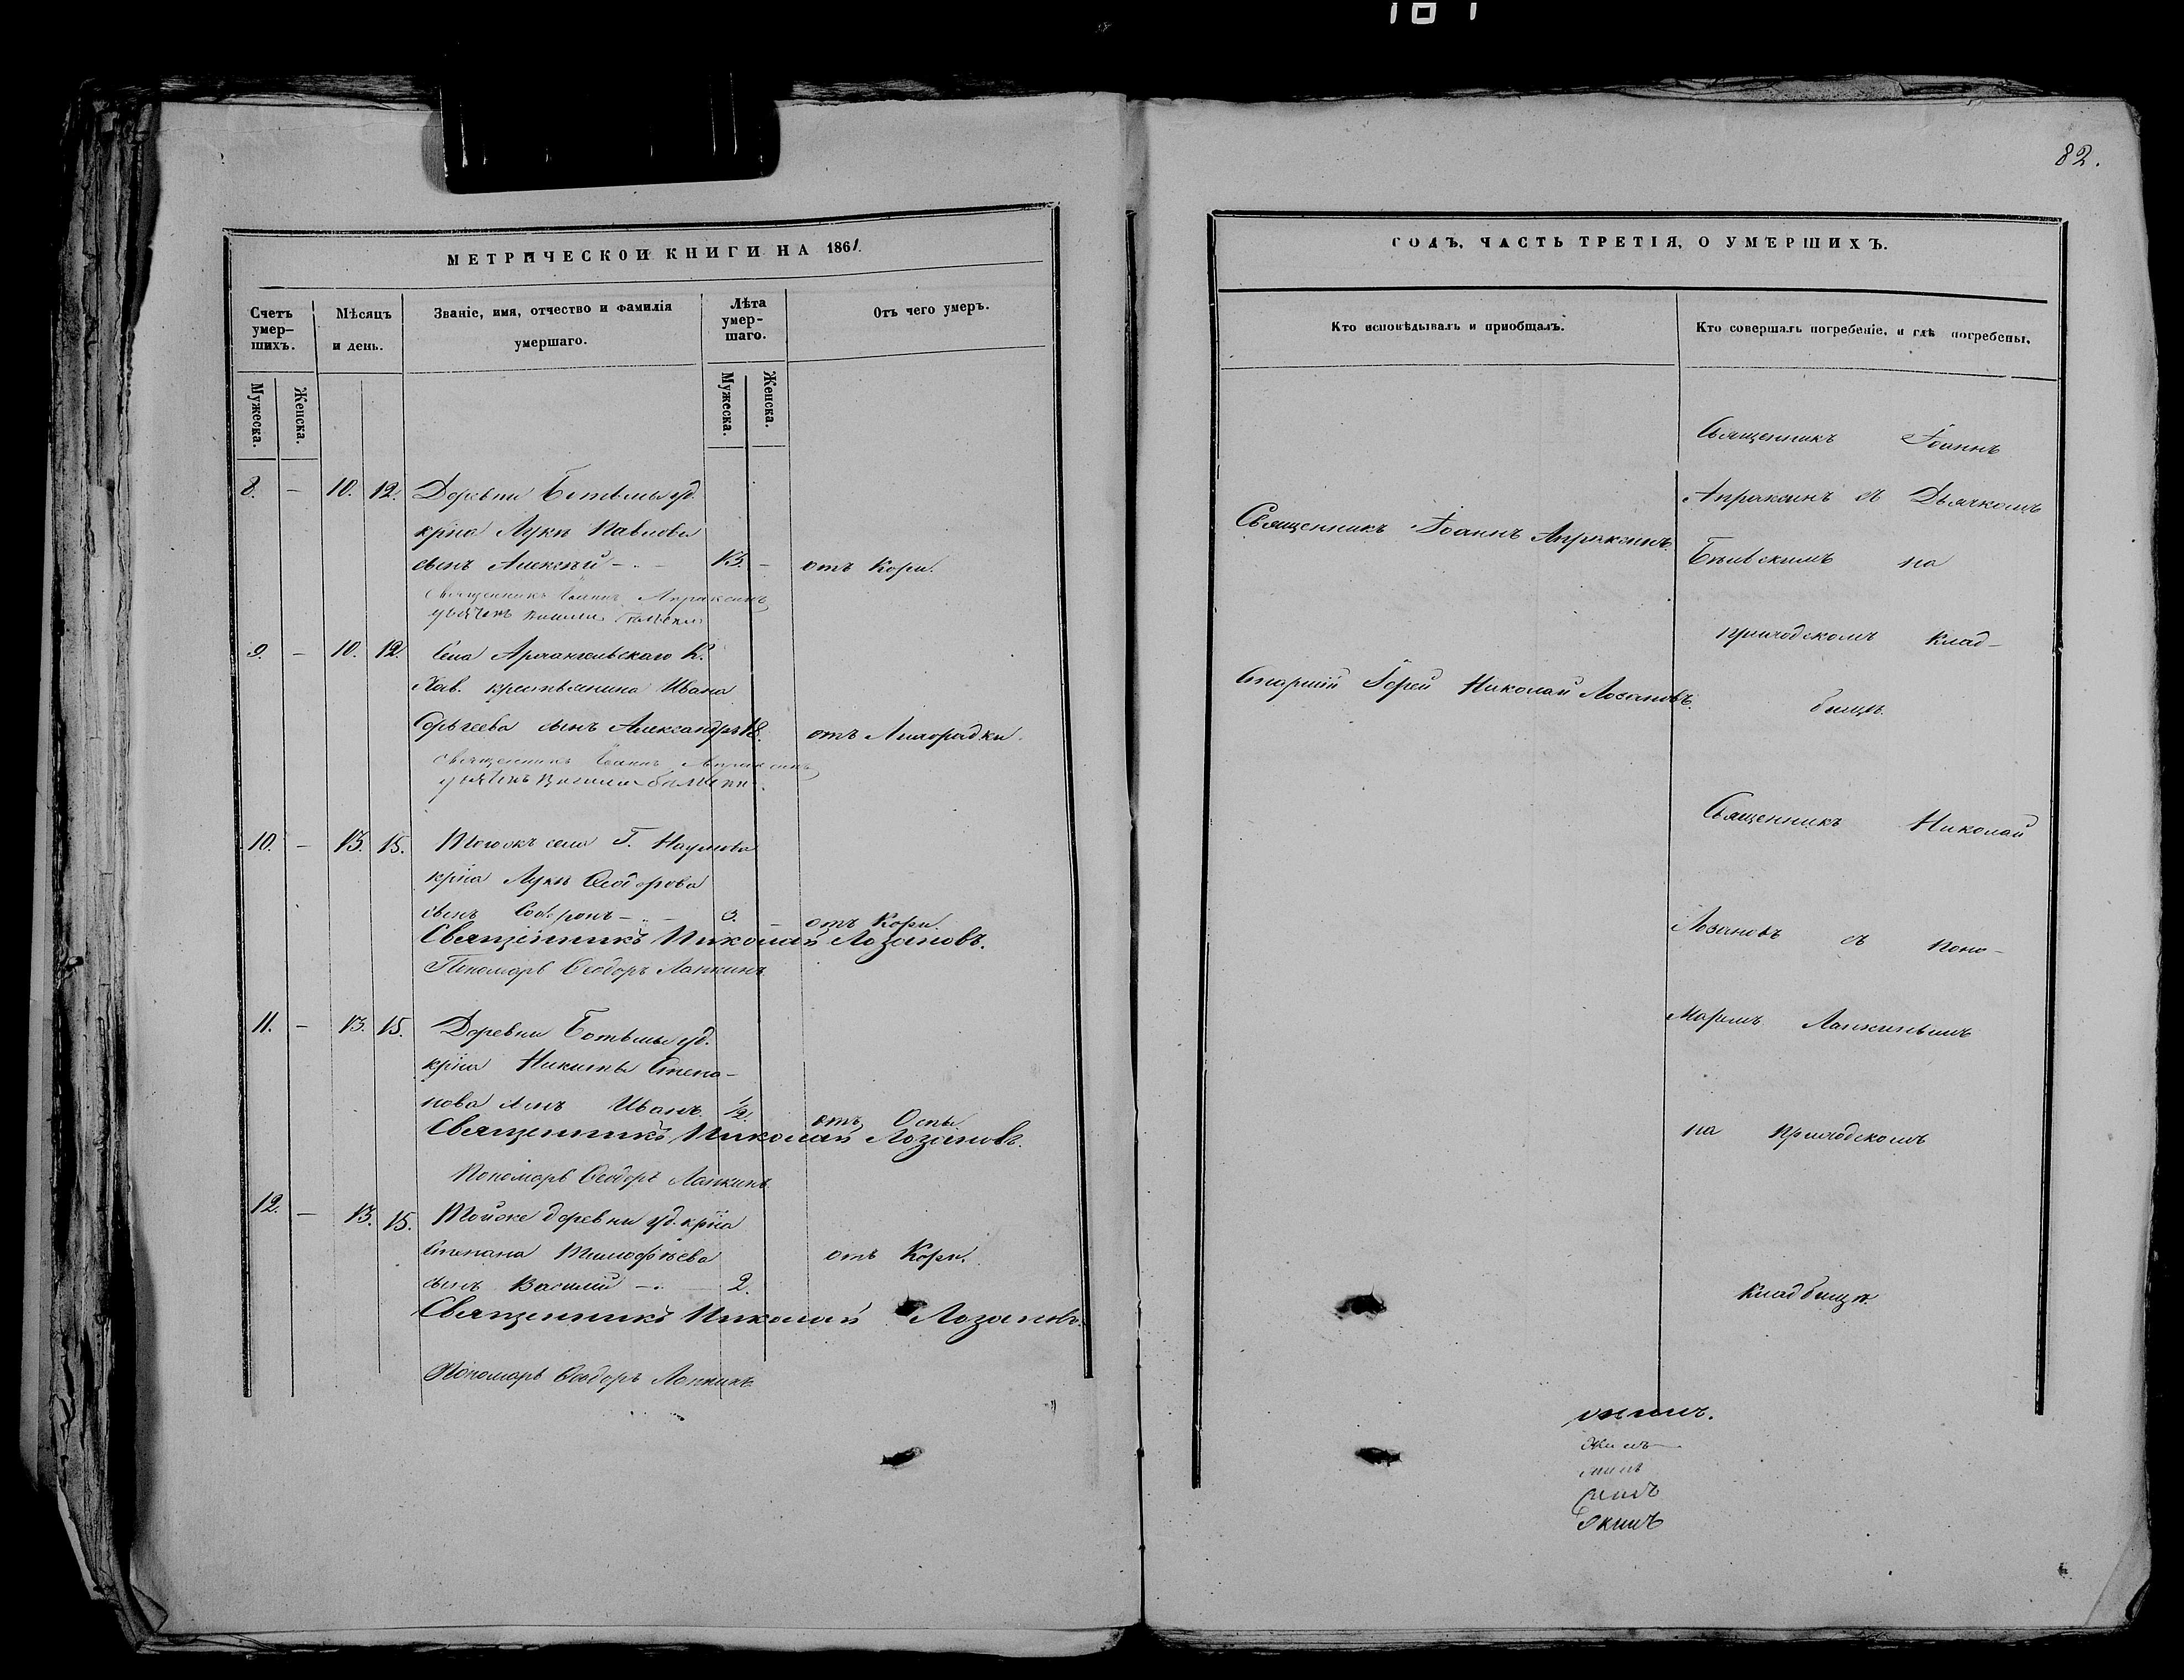 82.
МЕТРИЧЕСКОЙ КНИГИ НА 1861.
Счетъ умер-шихъ.
Мужеска.
Женска.
Мѣсяцъ и день.
Званіе, имя, отчество и фамилія умершаго.
Лѣта умер-шаго.
Мужеска.
Женска.
Отъ чего умеръ.
8. — 10. 12. Деревни Ботьмы уд.
кр̃на Луки Павлова
сынъ Алексѣй — 13. — отъ Кори.
Священникъ Іоаннъ Апраксинъ
9. — 10. 12. Села Архангельскаго К.
крестьянина Ивана
Сергѣева сынъ Александръ 18. отъ Лихорадки.
Священникъ Іоаннъ Апраксинъ
10. — 13. 15. Тогожъ села Г. Наумова
кр̃на Луки Ѳеодорова
сынъ Софронъ — 3. — отъ Кори.
Священникъ Николай Лозановъ.
Пономарь Ѳеодоръ Лапкинъ
11. — 13. 15. Деревни Ботьмы уд.
кр̃на Никиты Степа-
нова сынъ Иванъ. 1/2. отъ Оспы.
Священникъ Николай Лозановъ.
Пономарь Ѳеодоръ Лапкинъ
12. — 13. 15. Тойже деревни уд. кр̃на
Степана Тимофѣева отъ Кори.
сынъ Василій — 2.
Священникъ Николай Лозановъ.
Пономарь Ѳеодоръ Лапкинъ
ГОДЪ, ЧАСТЬ ТРЕТІЯ, О УМЕРШИХЪ.
Кто исповѣдывалъ и пріобщалъ.
Кто совершалъ погребеніе, и гдѣ погребены.
Священникъ Іоаннъ Апраксинъ.
Старшій Іерей Николай Лозановъ.
Священникъ Іоаннъ
Апраксинъ съ Дьячкомъ
на
приходскомъ Клад-
бищѣ.
Священникъ Николай
Лозановъ съ Поно-
маремъ Лапкинымъ
на Приходскомъ
Кладбищѣ.